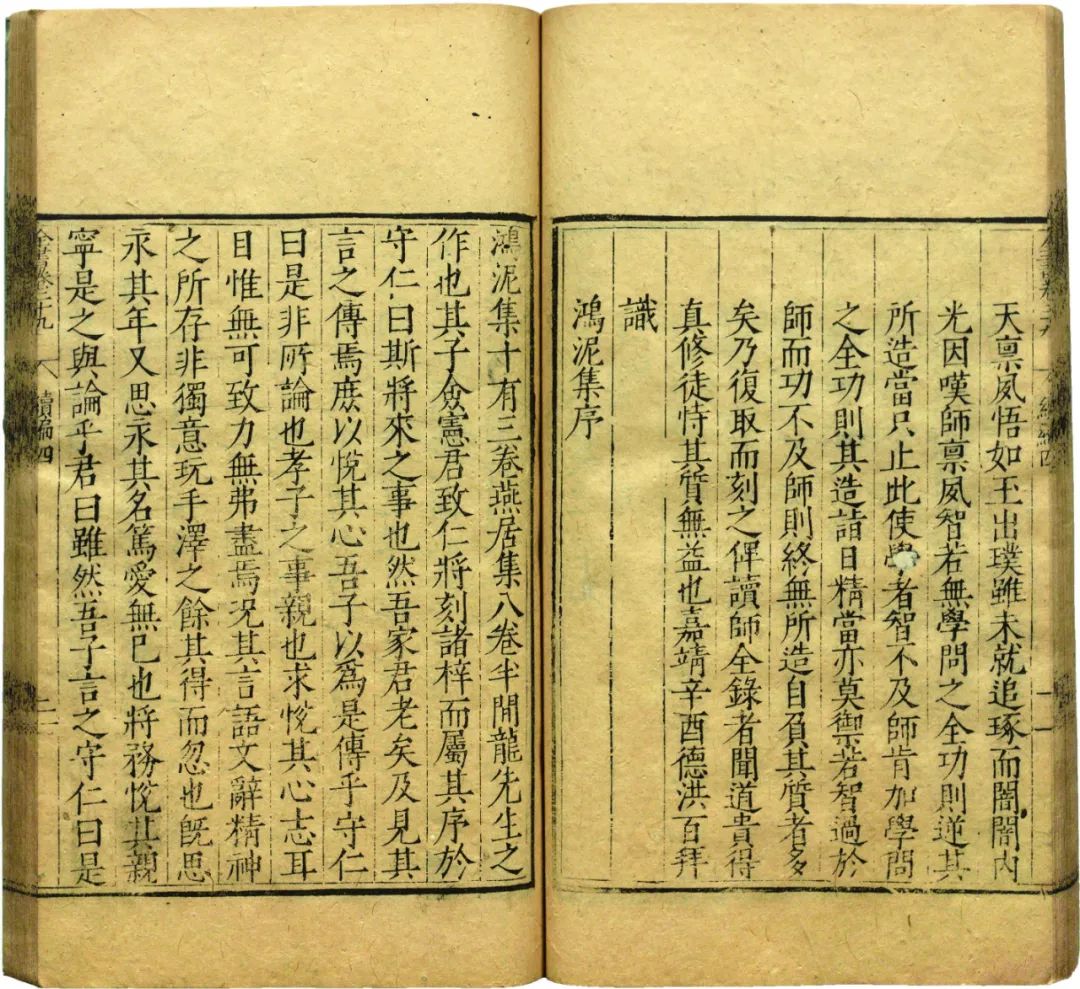 天禀夙悟如玉出璞雖未就追琢而闇闇内
光因嘆師禀夙智若無學問之全功則逆其
所造當只止此使學者智不及師肯加學問
之全功則其造詣日精當亦莫禦若智過於
師而功不及師則終無所造自負其質者多
矣乃復取而刻之俾讀師全錄者聞道貴得
真修徒恃其質無益也嘉靖辛酉德洪百拜
識
鴻泥集序
鴻泥集十有三卷燕居集八卷半閒龍先生之
作也其子僉憲君致仁將刻諸梓而屬其序於
守仁曰斯將來之事也然吾家君老矣及見其
言之傳焉庶以悅其心吾子以爲是傳乎守仁
曰是非所論也孝子之事親也求悅其心志耳
目惟無可致力無弗盡焉况其言語文辭精神
之所存非獨意玩手澤之餘其得而忽也旣思
永其年又思永其名篤愛無已也將務悅其親
寧是之與論乎君曰雖然吾子言之守仁曰是
全書卷二九
續編四